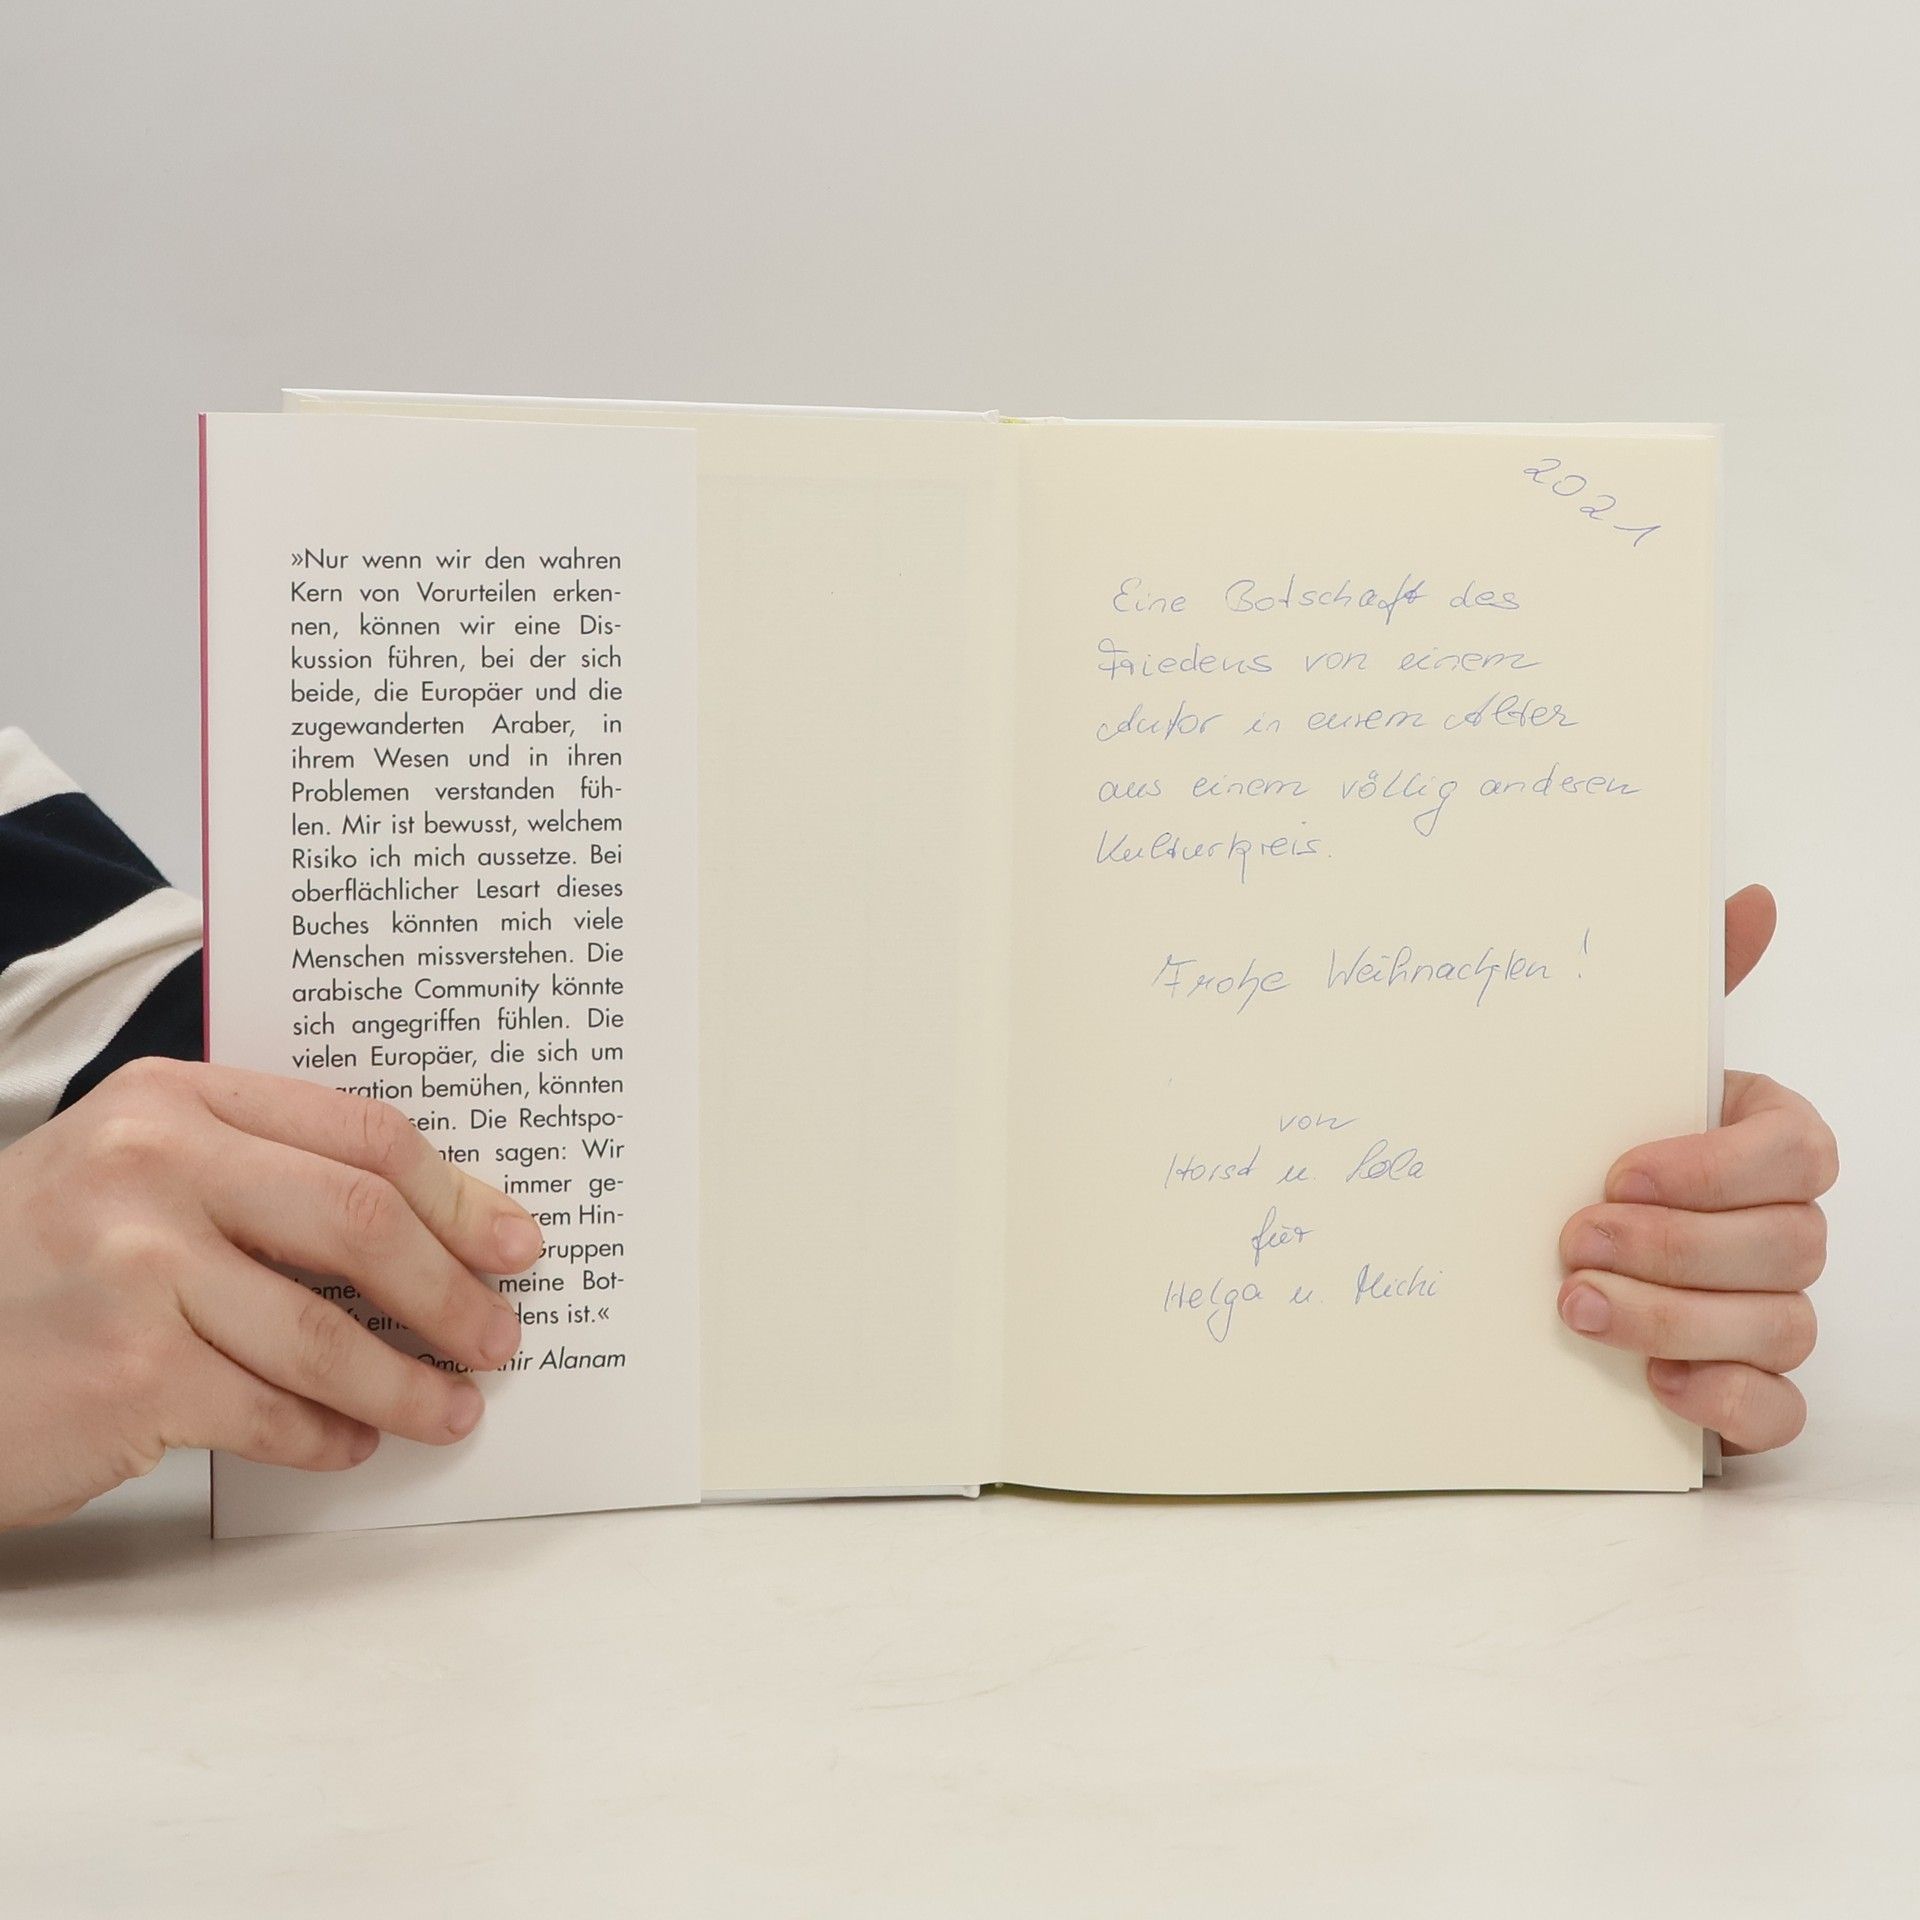 »Nur wenn wir den wahren
Kern von Vorurteilen erken-
nen, können wir eine Dis-
kussion führen, bei der sich
beide, die Europäer und die
zugewanderten Araber, in
ihrem Wesen und in ihren
Problemen verstanden füh-
len. Mir ist bewusst, welchem
Risiko ich mich aussetze. Bei
oberflächlicher Lesart dieses
Buches könnten mich viele
Menschen missverstehen. Die
arabische Community könnte
sich angegriffen fühlen. Die
vielen Europäer, die sich um
bemühen, könnten
sein. Die Rechtspo-
sagen: Wir
immer ge-
Hin-
Gruppen
meine Bot-
ist.«
Alanam
2021
Eine Botschaft des
Friedens von einem
Autor in eurem Alter
aus einem völlig anderen
Kulturkreis.
Frohe Weihnachten!
von
Horst u. Lola
für
Helga u. Michi